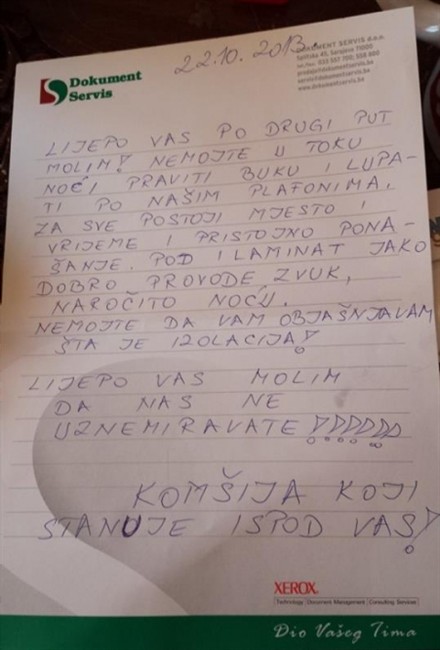 22.10. 2013.
Dokument
Servis
DOKUMENT SERVIS d.o.o.
LIJEPO VAS PO DRUGI PUT
MOLIM! NEMOJTE U TOKU
NOĆI PRAVITI BUKU I LUPA-
TI PO NAŠIM PLAFONIMA.
ZA SVE POSTOJI MJESTO I
VRIJEME I PRISTOJNO PONA-
ŠANJE. POD I LAMINAT JAKO
DOBRO PROVODE ZVUK,
NAROČITO NOĆU.
NEMOJTE DA VAM OBJAŠNJAVAM
ŠTA JE IZOLACIJA!
LIJEPO VAS MOLIM
DA NAS NE
UZNEMIRAVATE!!!!!!
KOMŠIJA KOJI
STANUJE ISPOD VAS!
XEROX.
Technology | Document Management | Consulting Services
Dio Vašeg Tima